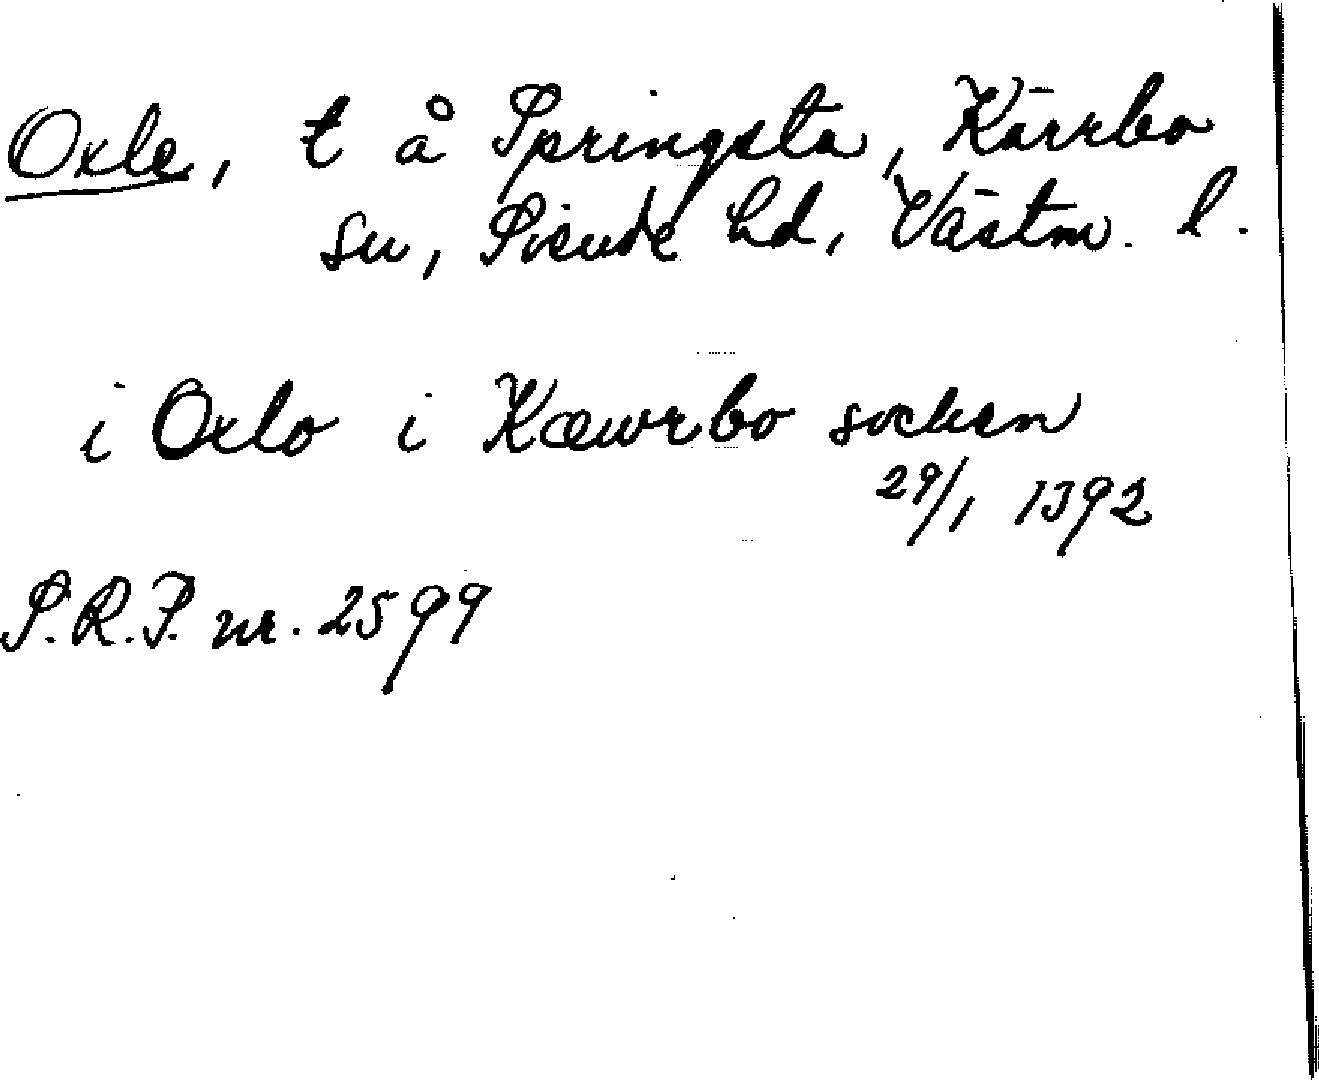 Oxle, t å Springsta, Kärrbo
sn, Siende hd, Västm. l.
i Oxlo i Kæwrbo socken
29/1 1392
S.R.P. nr. 2599